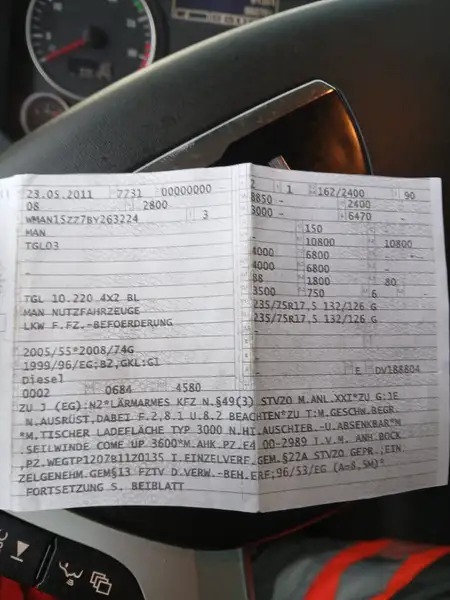 23.05.2011 7731 00000000
08 2800
WMAN15ZZ7BY263224 3
MAN
TGL03
-
TGL 10.220 4X2 BL
MAN NUTZFAHRZEUGE
LKW F.FZ.-BEFOERDERUNG
2005/55*2008/74G
1999/96/EG;B2,GKL:G1
Diesel
0002 0684 4580
2 1 162/2400 90
8850 - 2400
3000 - 6470 -
150
10800 10800
4000 6800 --
4000 6800 -
88 1800 80
3500 750 6
235/75R17,5 132/126 G
235/75R17,5 132/126 G
-
E DV188804
ZU J (EG):N2*LÄRMARMES KFZ N.§49(3) STVZO M.ANL.XXI*ZU G:IE
N.AUSRÜST,DABEI F.2,8.1 U.8.2 BEACHTEN*ZU T:M.GESCHW.BEGR.
*M.TISCHER LADEFLÄCHE TYP 3000 N.HI.AUSCHIEB.-U.ABSENKBAR*M
.SEILWINDE COME UP 3600*M.AHK.PZ.E4.00-2989 I.V.M. ANH.BOCK
,PZ.WEGTP1207B1120135 T.EINZELVERF.GEM.§22A STVZO GEPR.;EIN
ZELGENEHM.GEM§13 FZTV D.VERW.-BEH.ERF;96/53/EG (A=8,5M)*
FORTSETZUNG S. BEIBLATT